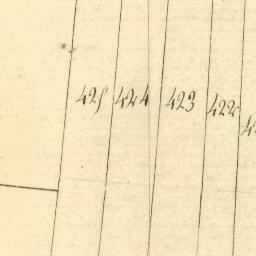 425 424 423 422